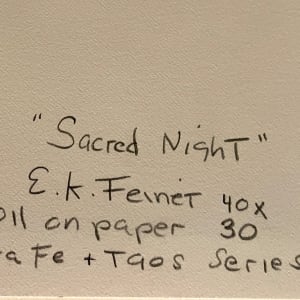 "Sacred Night"
E.K. Feinet 40x
oil on paper 30
a Fe + Taos Series